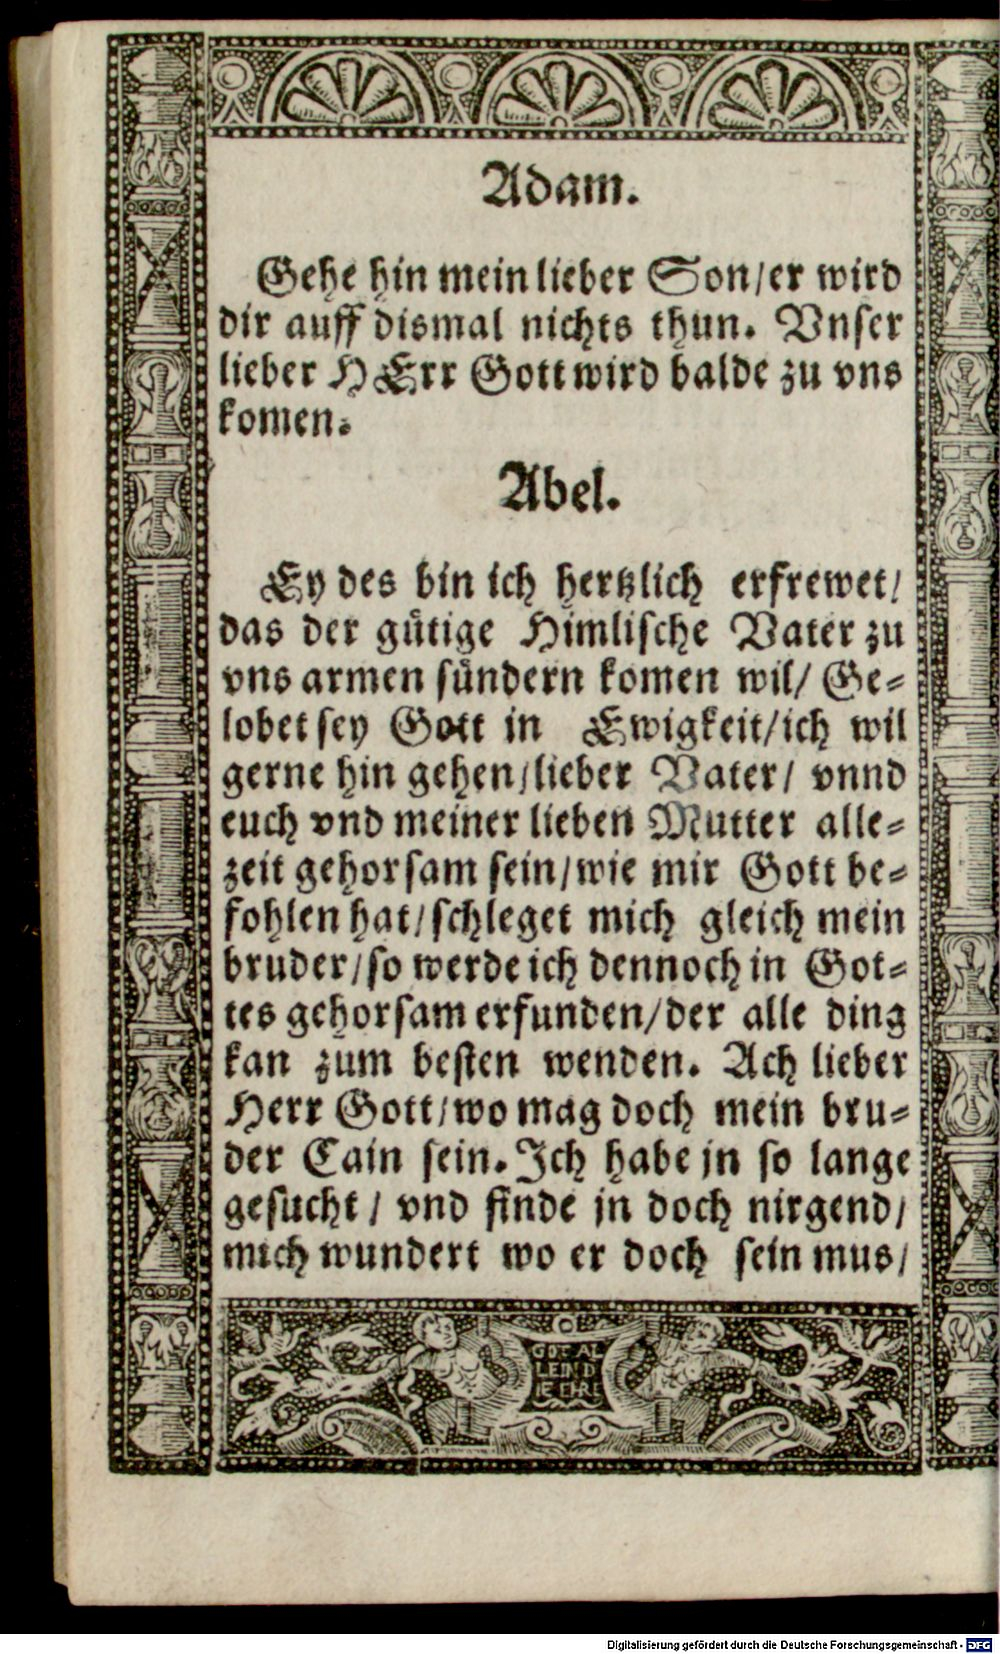 Adam.
Gehe hin mein lieber Son/er wird
dir auff dismal nichts thun. Vnser
lieber HErr Gott wird balde zu vns
komen.
Abel.
Ey des bin ich hertzlich erfrewet/
das der gütige Himlische Vater zu
vns armen sündern komen wil/ Ge-
lobet sey Gott in Ewigkeit/ich wil
gerne hin gehen/lieber Vater/ vnnd
euch vnd meiner lieben Mutter alle-
zeit gehorsam sein/wie mir Gott be-
fohlen hat/schleget mich gleich mein
bruder/so werde ich dennoch in Got-
tes gehorsam erfunden/der alle ding
kan zum besten wenden. Ach lieber
Herr Gott/wo mag doch mein bru-
der Cain sein. Ich habe jn so lange
gesucht/ vnd finde jn doch nirgend/
mich wundert wo er doch sein mus/
GOT AL
LEIN D
IE EHR
Digitalisierung gefördert durch die Deutsche Forschungsgemeinschaft - DFG